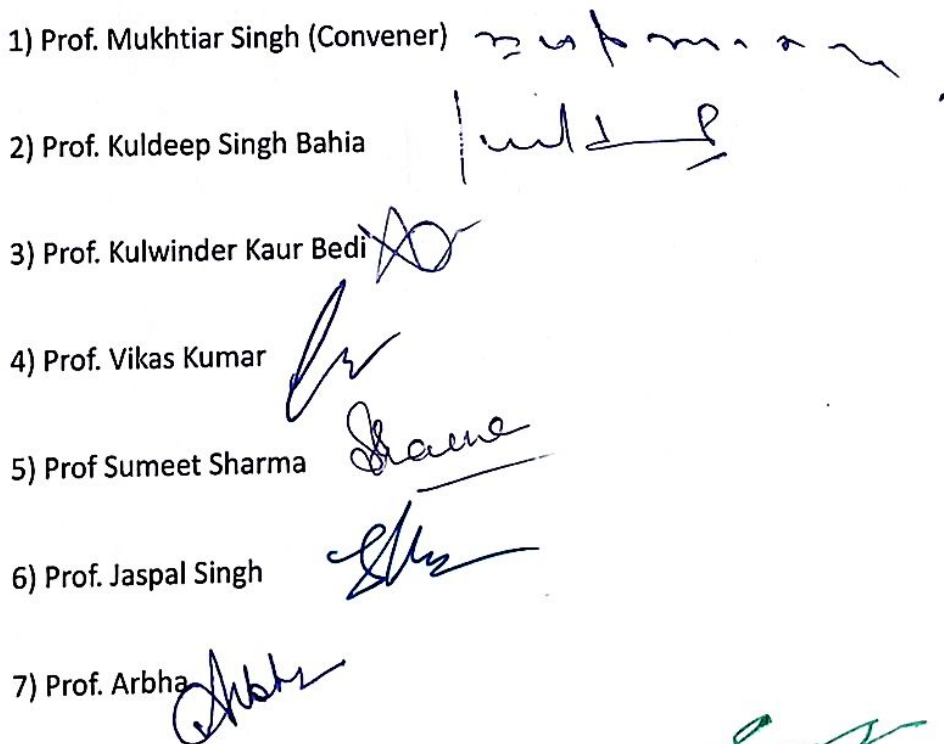 1) Prof. Mukhtiar Singh (Convener)
2) Prof. Kuldeep Singh Bahia
3) Prof. Kulwinder Kaur Bedi
4) Prof. Vikas Kumar
5) Prof Sumeet Sharma Sharma
6) Prof. Jaspal Singh
7) Prof. Arbha